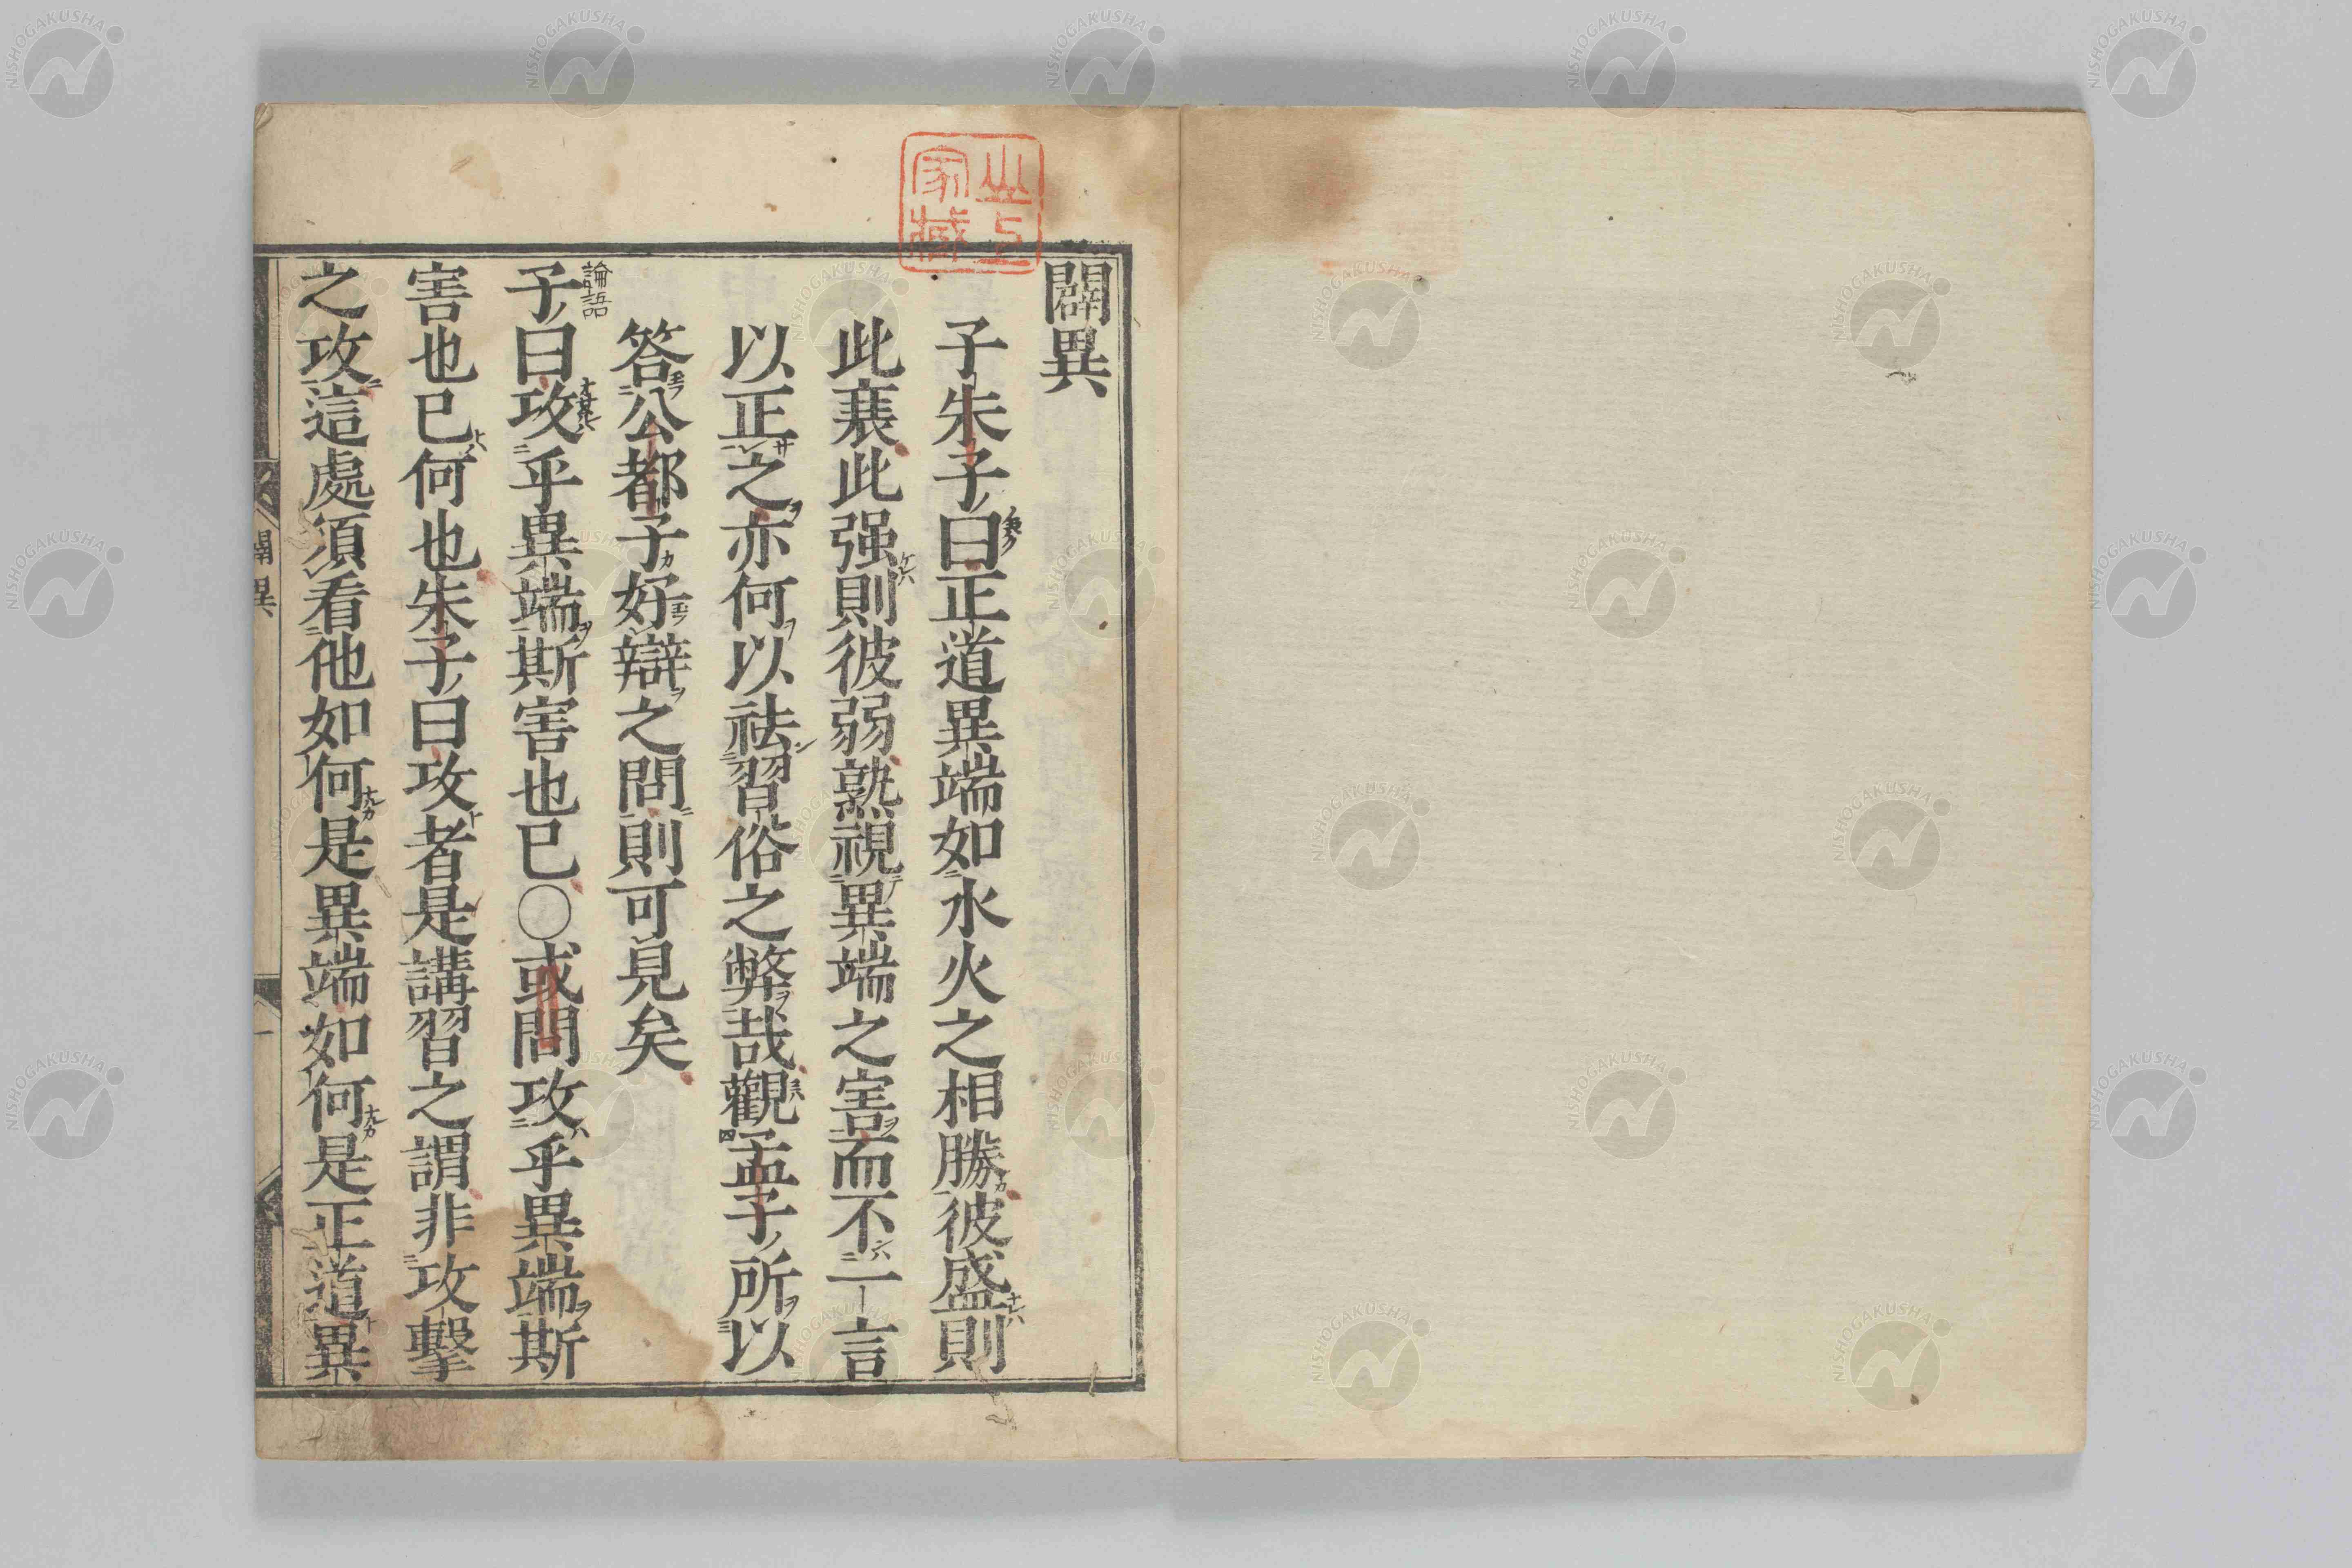 闢異
子朱子曰正道異端如水火之相勝彼盛則
此衰此强則彼弱熟視異端之害而不一言
以正之亦何以袪習俗之弊哉觀孟子所以
答公都子好辯之問則可見矣
論語
子曰攻乎異端斯害也已〇或問攻乎異端斯
害也已何也朱子曰攻者是講習之謂非攻擊
之攻這處須看他如何是異端如何是正道異
闢異
一
家藏
NISHOGAKUSHA